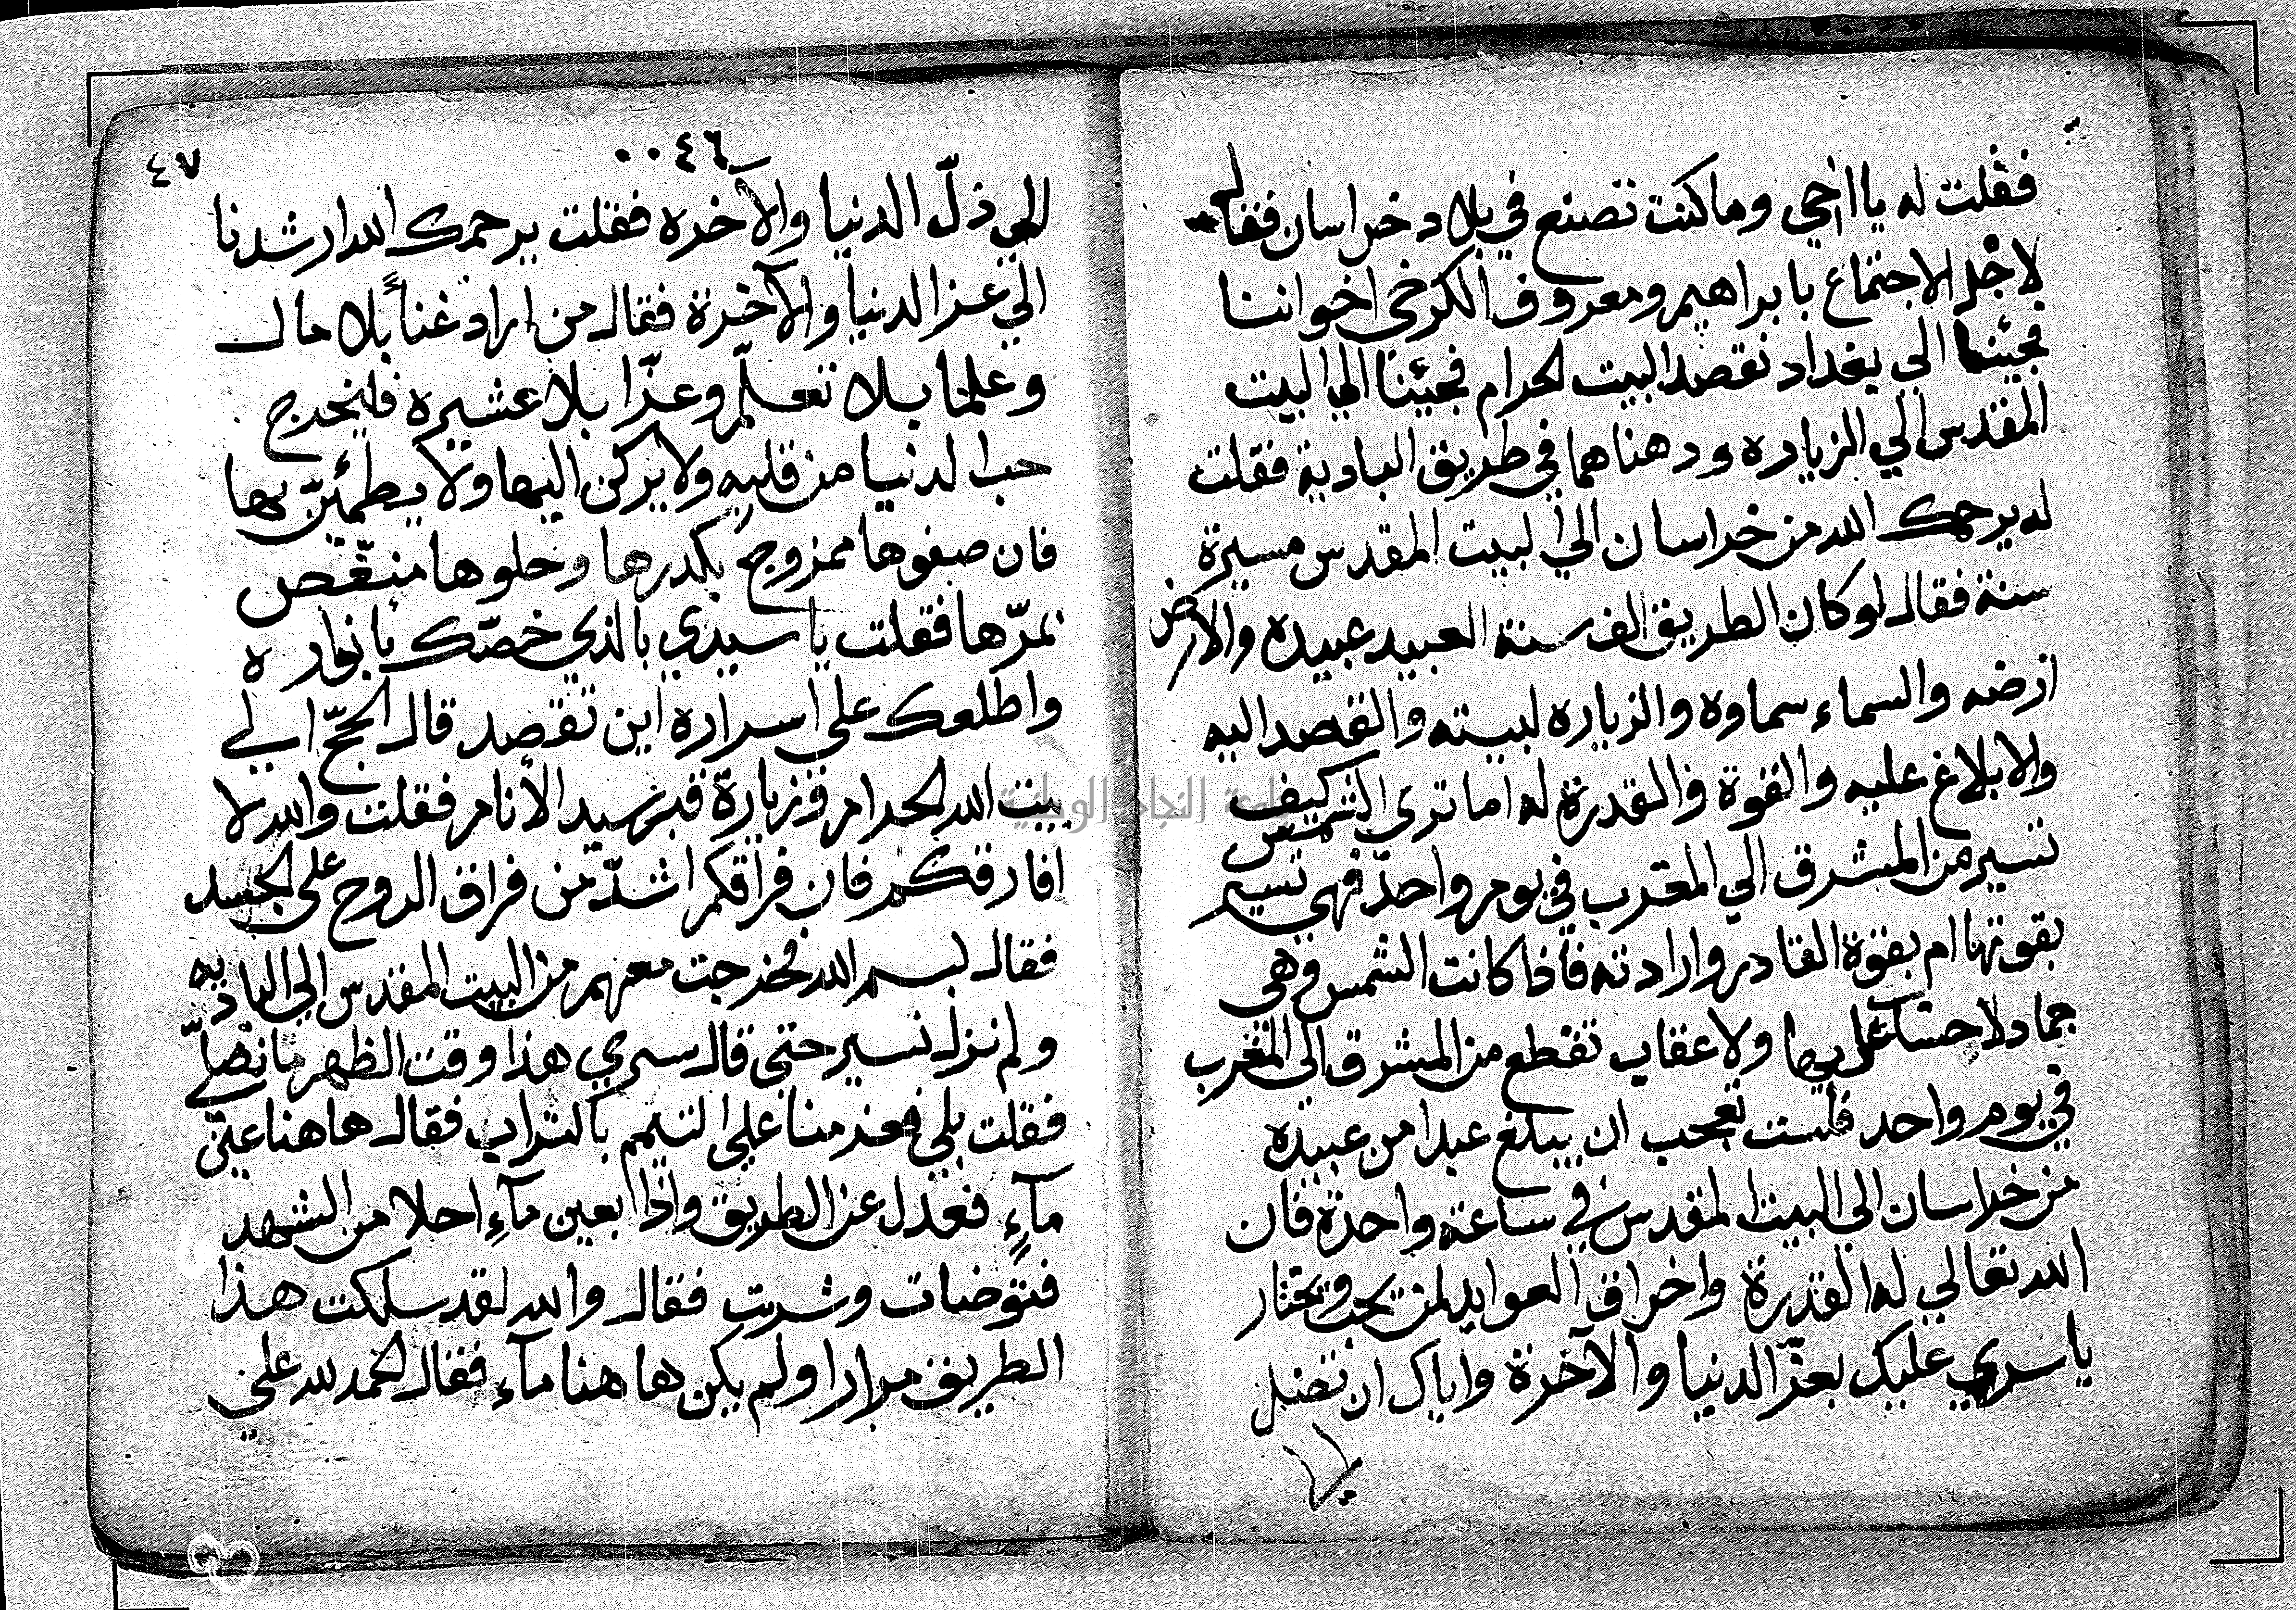 فقلت له يا اخي وما كنت تصنع في بلاد خراسان فقال
لاجل الاجتماع بابراهيم ومعروف الكرخي اخواننا
فجيئنا الي بغداد نقصد البيت الحرام فجيئنا الي البيت
المقدس الي الزياره ودهناهما في طريق البادية فقلت
له يرحمك الله من خراسان الي البيت المقدس مسيرة
سنة فقال لو كان الطريق الف سنة العبيد عبيده والارض
ارضه والسماء سماوه والزياره لبيته والقصد اليه
والابلاغ عليه والقوة والقدرة له اما تري الشمس كيف
تسير من المشرق الي المغرب في يوم واحد فهي تسير
بقوتها ام بقوة القادر وارادته فاذا كانت الشمس وهي
جماد لا حساب عليها ولا عقاب تقطع من المشرق الي المغرب
في يوم واحد فليست تعجب ان يبلغ عبدا من عبيده
من خراسان الي البيت المقدس في ساعة واحدة فان
الله تعالي له القدرة واخراق العوايد لمن يحب ويختار
يا سري عليك بعز الدنيا والآخرة واياك ان تضل
الي ذلّ الدنيا والآخره فقلت يرحمك الله ارشدنا
الي عز الدنيا والآخرة فقال من اراد غناً بلا مال
وعلما بلا تعلّم وعزّا بلا عشيره فليخرج
حب الدنيا من قلبه ولا يركن اليها ولا يطمئنّ بها
فان صفوها ممزوج بكدرها وحلوها منغّص
بمرّها فقلت يا سيدي بالذي خصّك بانواره
واطلعك علي اسراره اين تقصد قال الحجّ الي
بيت الله الحرام وزيارة قبر سيد الأنام فقلت والله لا
افارقكم فان فراقكم اشدّ من فراق الروح على الجسد
فقال بسم الله فخرجت معهم من البيت المقدس الي الباديه
ولم نزل نسير حتى قال سري هذا وقت الظهر ما نصلّي
فقلت بلي فعزمنا علي التيمم بالتراب فقال ها هنا عين
مآءٍ فعدل عن الطريق واذا بعين مآءٍ احلا من الشهد
فتوضات وشربت فقال والله لقد سلكت هذا
الطريق مرارا ولم يكن ها هنا مآء فقال الحمد لله على
٠٠٤٦
٤٧